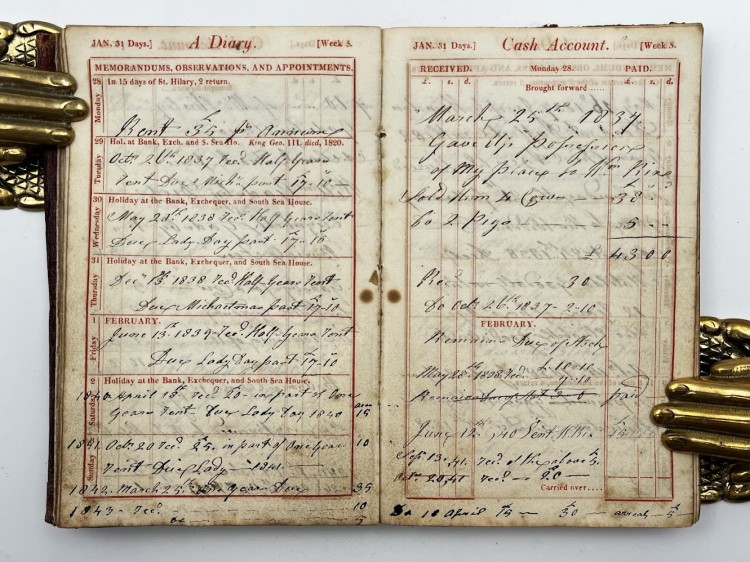 JAN. 31 Days.] A Diary. [Week 5.
MEMORANDUMS, OBSERVATIONS, AND APPOINTMENTS.
28 Monday In 15 days of St. Hilary, 2 return.
Rent £35 pr Annum
29 Tuesday Hol. at Bank, Exch. and S. Sea Ho. King Geo. III. died, 1820.
Octr 26th 1837 Recd Half Years
Rent Due Michs past 17-10
30 Wednesday Holiday at the Bank, Exchequer, and South Sea House.
May 28th 1838 Recd Half Years Rent
Due Lady Day past 17-10
31 Thursday Holiday at the Bank, Exchequer, and South Sea House.
Decr 1838 Recd Half Years Rent
Due Michaelmas past 17-10
1 Friday FEBRUARY.
June 13th 1839 Recd Half Years Rent
Due Lady Day past 17-10
2 Saturday Holiday at the Bank, Exchequer, and South Sea House.
1840 April Recd 20- in part of One
Years Rent Due Lady Day 1840 15
Sunday
1841. Octr 20 Recd 25. in part of One Year 10
Rent Due Lady 1841.
1842. March 25th Years Due 35
1843 Recd 10
5
JAN. 31 Days.] Cash Account. [Week 5.
RECEIVED. Monday 28. PAID.
£. s. d. £. s. d.
Brought forward......
March 25th 1837
Gave Up Possession
of My place to Wm
Sold him 38
Do 2 Pigs 5
£ 43 0 0
Recd 30
Do Octr 26th 1837-2-10
FEBRUARY.
Remains Due
May 28th 1838 Recd 10-10
Remain paid
June 1840 Rent
Sepr 13. 41. Recd of the above 5.
Octr 20, 41 Recd 20
Carried over......
10 April 30 5